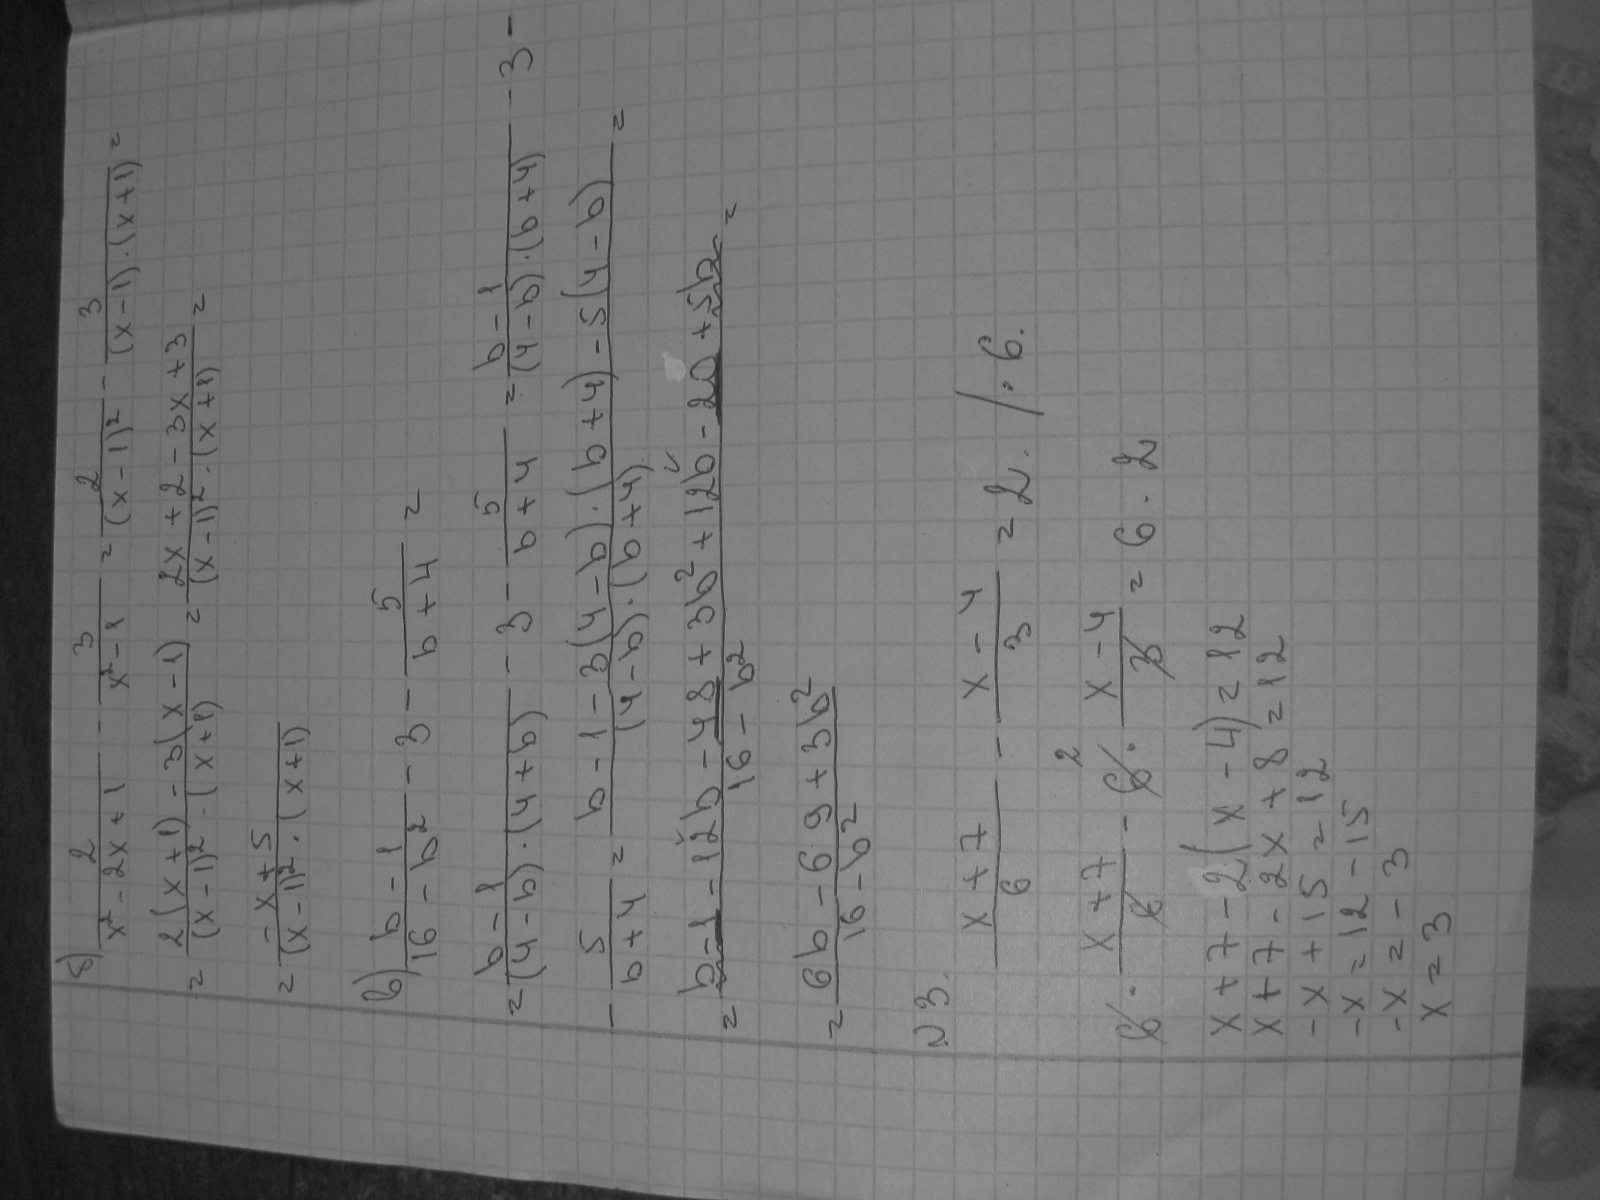 8) 2/(x² - 2x + 1) - 3/(x² - 1) = 2/(x - 1)² - 3/((x - 1)·(x + 1)) =
= (2(x + 1) - 3(x - 1))/((x - 1)²·(x + 1)) = (2x + 2 - 3x + 3)/((x - 1)²·(x + 1)) =
= (-x + 5)/((x - 1)²·(x + 1))
b) (b - 1)/(16 - b²) - 3 - 5/(b + 4) =
= (b - 1)/((4 - b)·(4 + b)) - 3 - 5/(b + 4) = (b - 1)/((4 - b)·(b + 4)) - 3 -
- 5/(b + 4) = (b - 1 - 3(4 - b)·(b + 4) - 5(4 - b))/((4 - b)·(b + 4)) =
= (b - 1 - 12b - 48 + 3b² + 12b - 20 + 5b)/(16 - b²) =
= (6b - 69 + 3b²)/(16 - b²)
N3.
(x + 7)/6 - (x - 4)/3 = 2. /·6.
6·(x + 7)/6 - 6²·(x - 4)/3 = 6·2
x + 7 - 2(x - 4) = 12
x + 7 - 2x + 8 = 12
-x + 15 = 12
-x = 12 - 15
-x = -3
x = 3